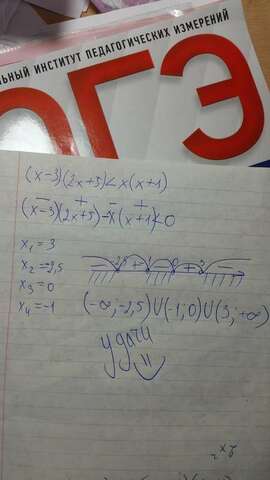 ЛЬНЫЙ ИНСТИТУТ ПЕДАГОГИЧЕСКИХ ИЗМЕРЕНИЙ
ОГЭ
(x-3)(2x+5)<x(x+1)
(x-3)(2x+5)-x(x+1)<0
x₁=3
x₂=-2,5
x₃=0
x₄=-1
(-∞;-2,5)U(-1;0)U(3;+∞)
удачи